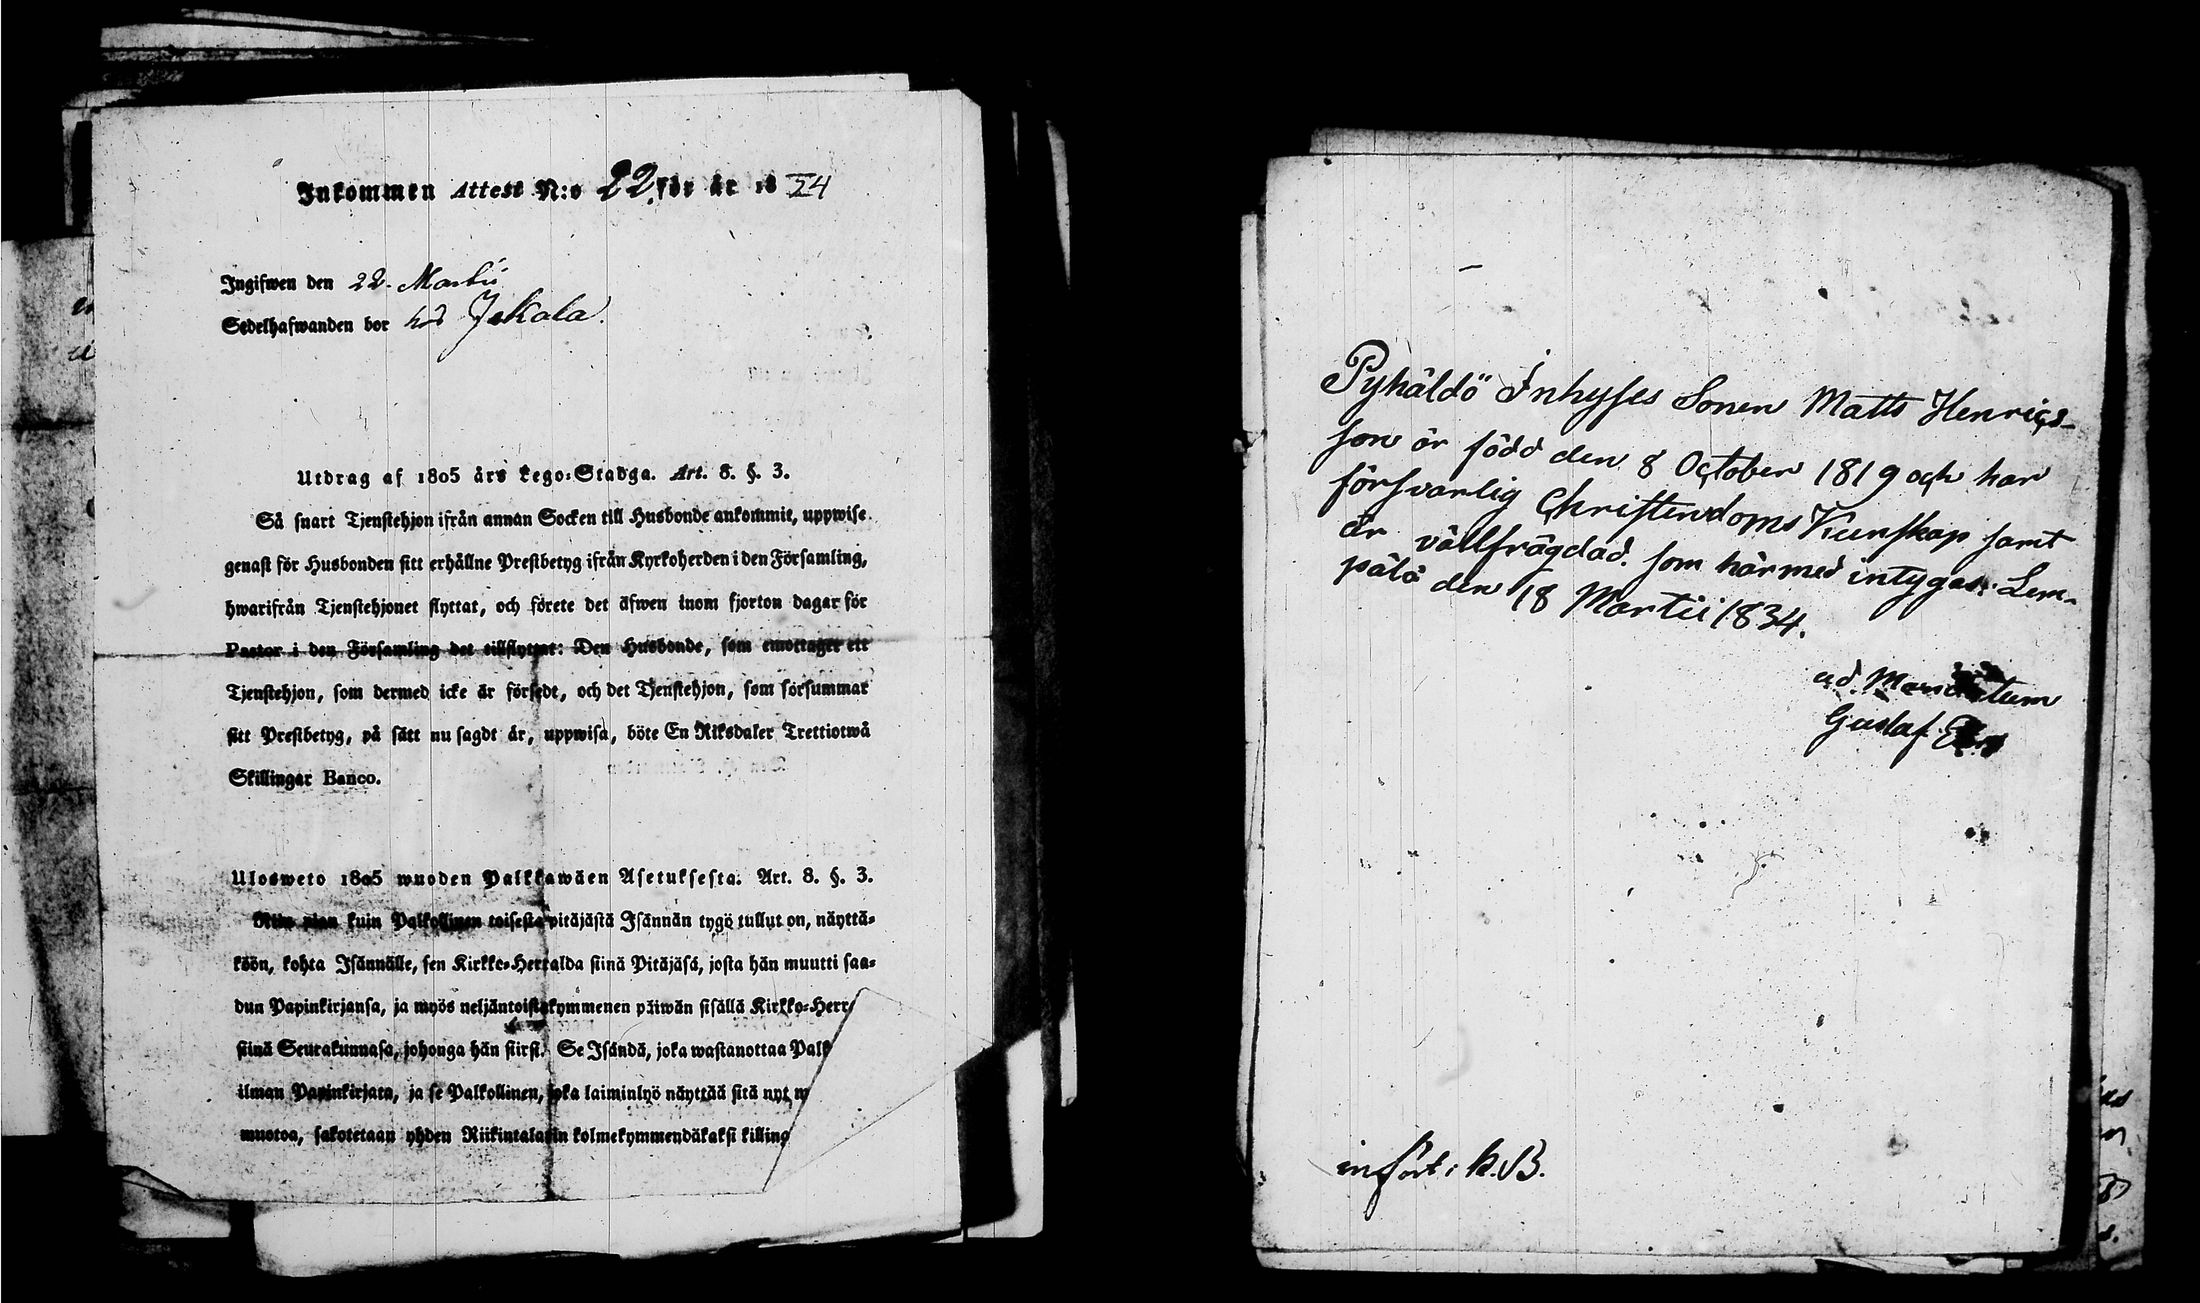 Inkommen Attest N:o 22. för år 18 34
Ingifwen den 22. Martii
Sedelhafwanden bor hos Jskala.
Utdrag af 1805 års Lego-Stadga. Art. 8. §. 3.
Så snart Tjenstehjon ifrån annan Socken till Husbonde ankommit, uppwise
genast för Husbonden sitt erhållne Prestbetyg ifrån Kyrkoherden i den Församling,
hwarifrån Tjenstehjonet flyttat, och förete det äfwen inom fjorton dagar för
Pastor i den Församling det tillflyttat: Den Husbonde, som emottager ett
Tjenstehjon, som dermed icke är försedt, och det Tjenstehjon, som försummar
sitt Prestbetyg, på sätt nu sagdt är, uppwisa, böte En Riksdaler Trettiotwå
Skillingar Banco.
Ulosweto 1805 wuoden Palkkawäen Asetuksesta. Art. 8. §. 3.
Niin pian kuin Palkollinen toisesta pitäjästä Isännän tygö tullut on, näyttä-
köön, kohta Isännälle, sen Kirkko-Herralda siinä Pitäjäsä, josta hän muutti saa-
dun Papinkirjansa, ja myös neljäntoistakymmenen päiwän sisällä Kirkko-Herr
siinä Seurakunnasa, johonga hän siirsi. Se Isändä, joka wastanottaa Palk
ilman Papinkirjata, ja se Palkollinen, joka laiminlyö näyttää sitä nyt m
muotoa, sakotetaan yhden Riikintalarin kolmekymmendäkaksi killing
Pyhäldö Inhyses Sonen Matts Henrics-
son är född den 8 October 1819 och har
försvarlig Christendoms Kunskap samt
är vällfrägdad. som härmed intygas. Lem-
pälä den 18 Martii 1834.
ad. Mandatum
Gustaf
infört i K.B.